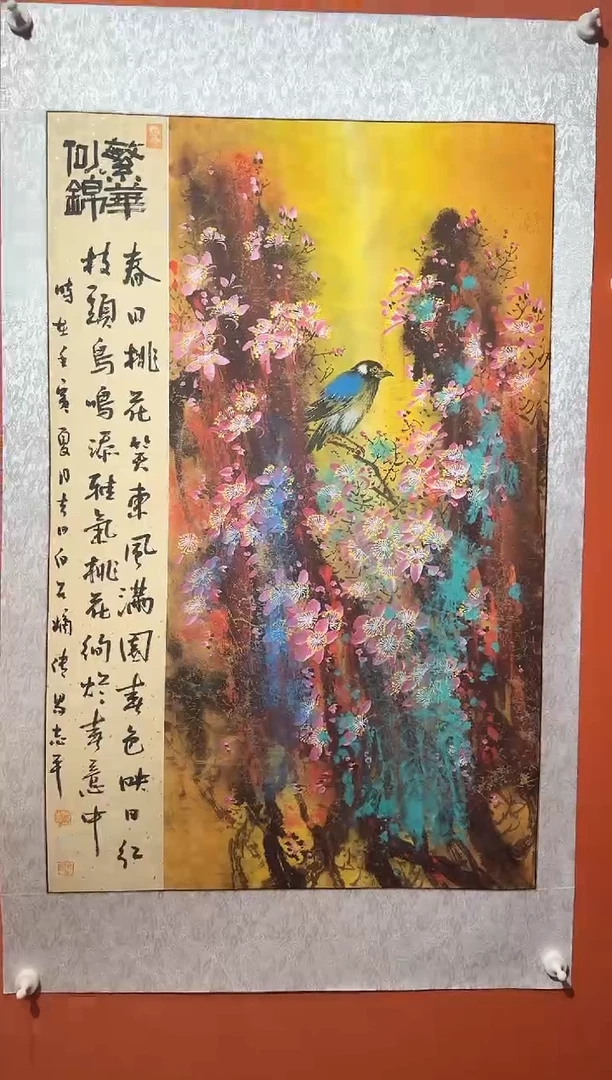 繁華
似錦
春日桃花笑東風滿園春色映日紅
枝頭鳥鳴添雅氣桃花絢烂春意中
時在壬寅夏月吉日白石嫡傳志平